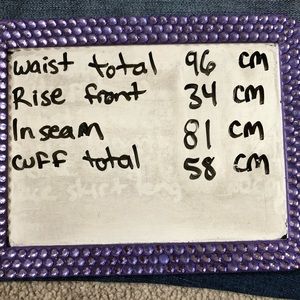 waist total 96 cm
Rise front 34 cm
Inseam 81 cm
cuff total 58 cm